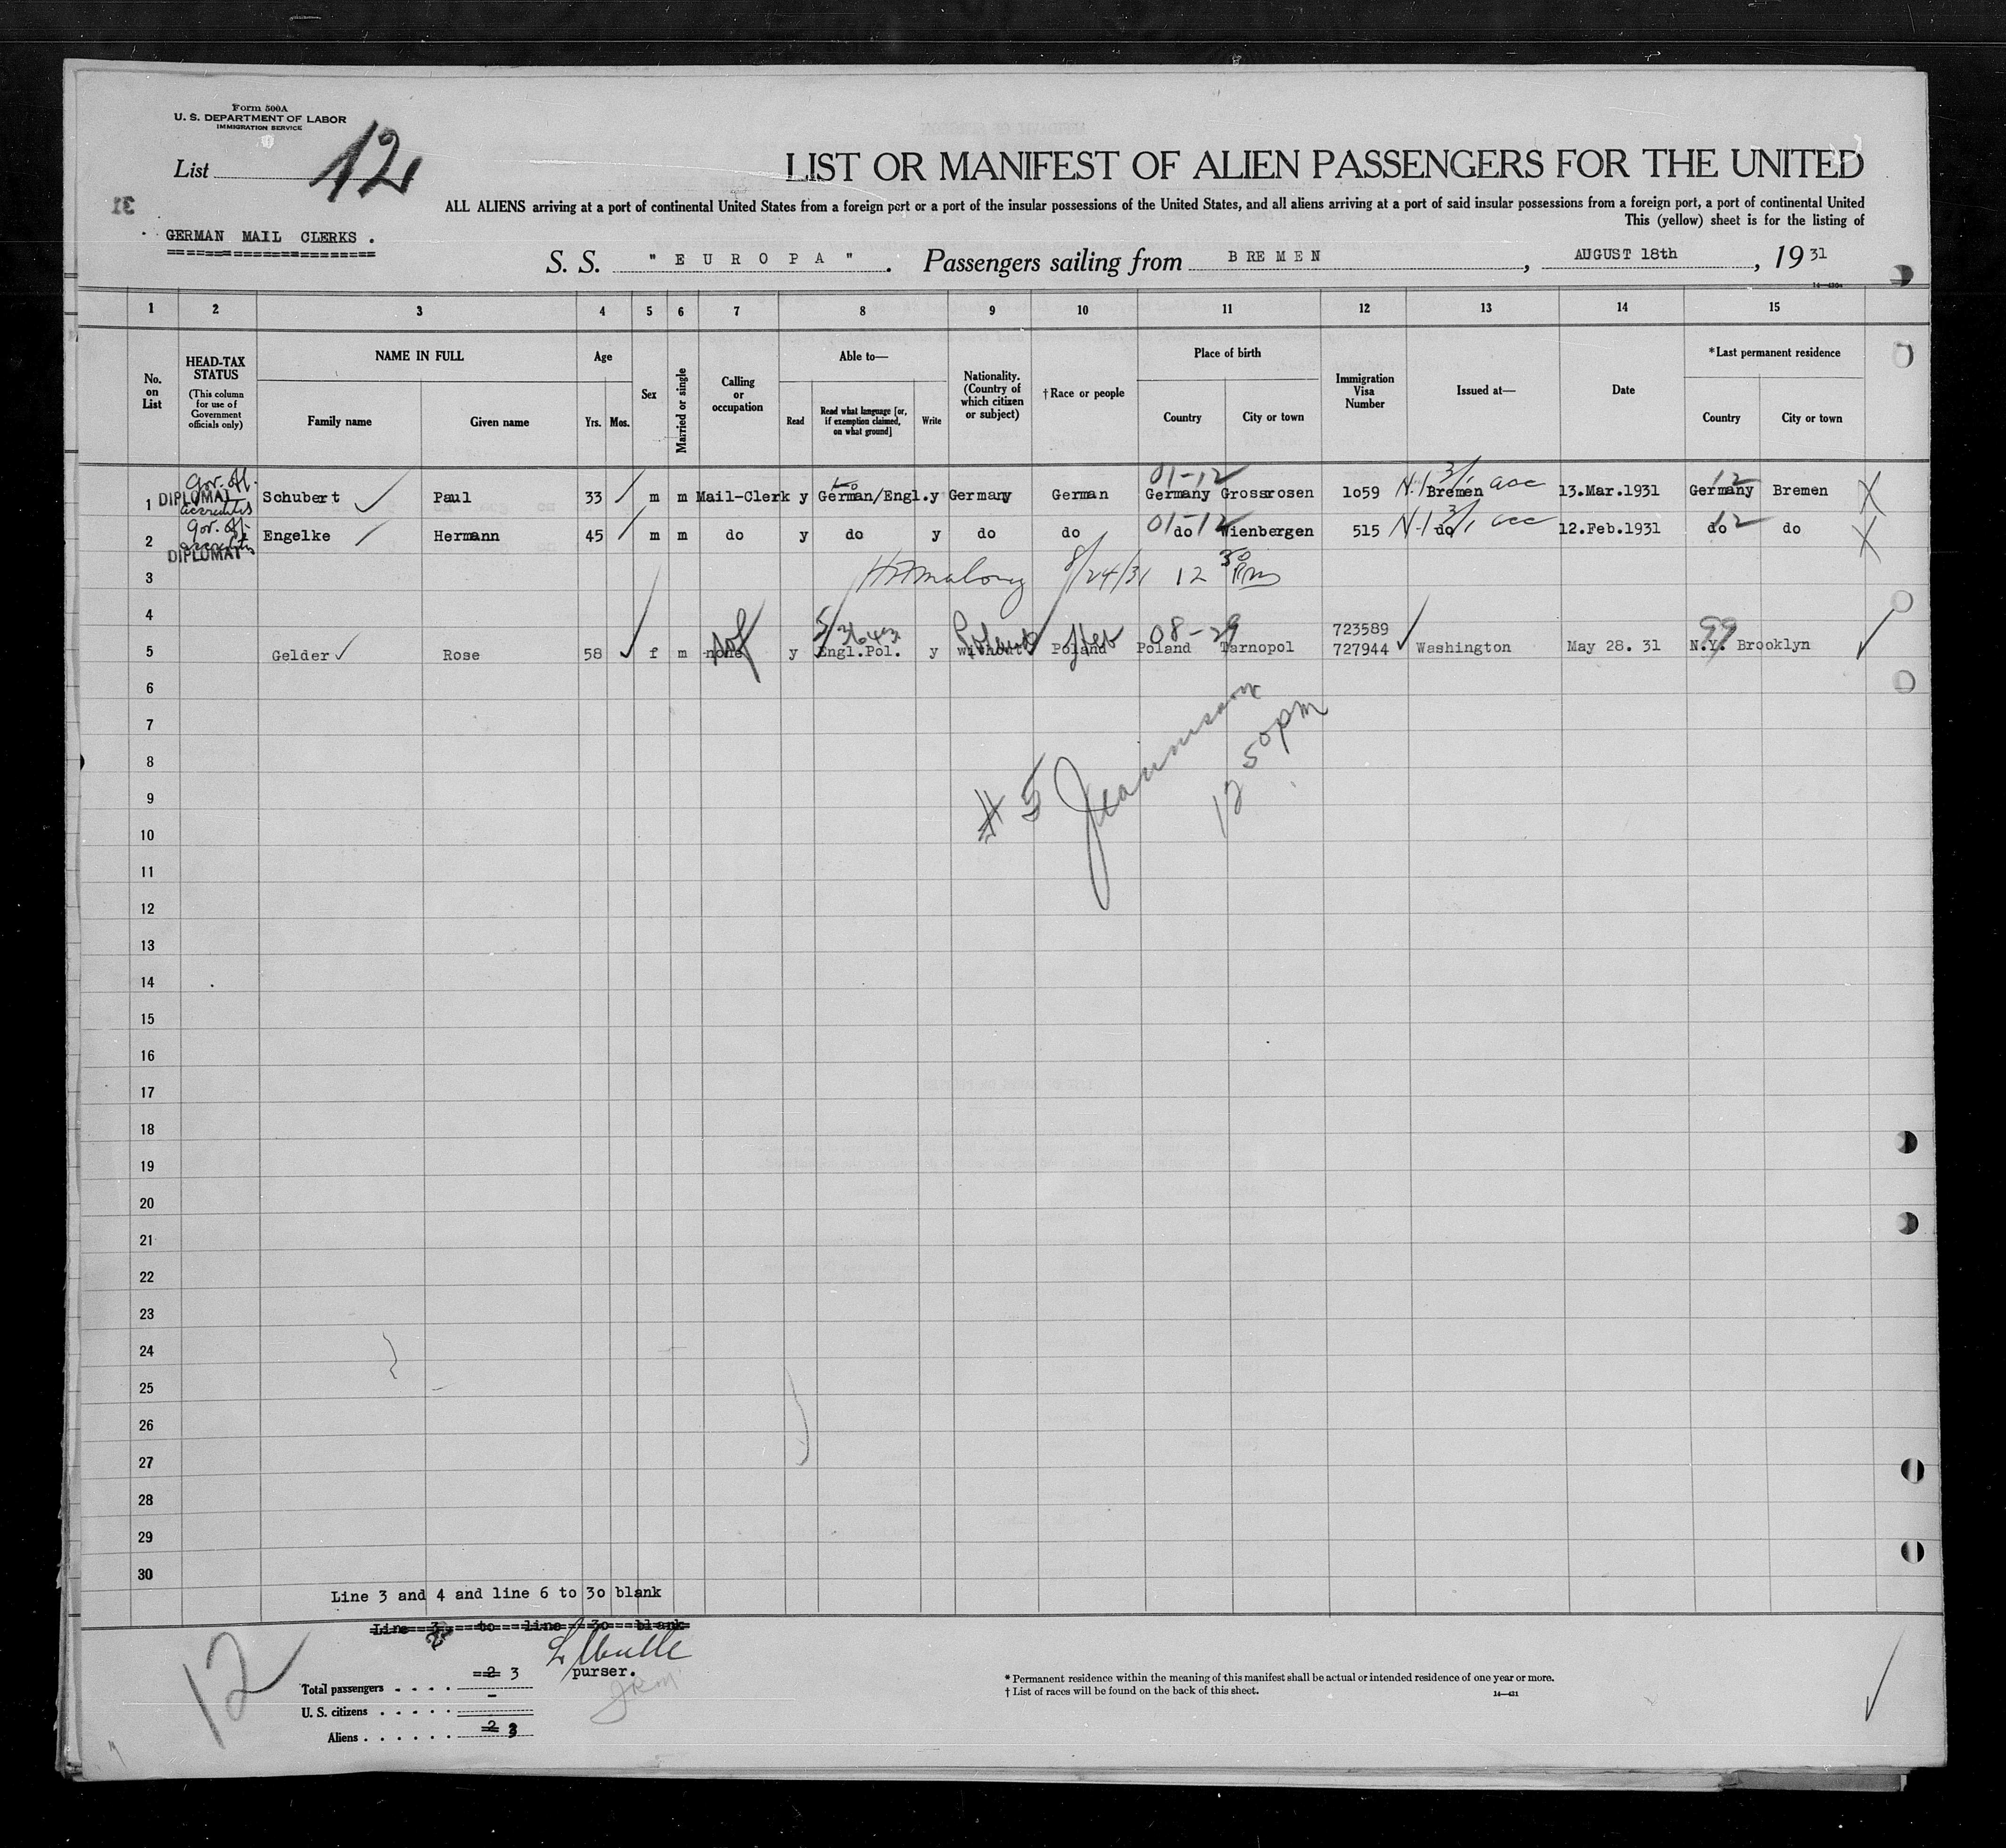 Form 500A
U. S. DEPARTMENT OF LABOR
IMMIGRATION SERVICE
List 12
LIST OR MANIFEST OF ALIEN PASSENGERS FOR THE UNITED
ALL ALIENS arriving at a port of continental United States from a foreign port or a port of the insular possessions of the United States, and all aliens arriving at a port of said insular possessions from a foreign port, a port of continental United
This (yellow) sheet is for the listing of
GERMAN MAIL CLERKS .
S. S. " E U R O P A " . Passengers sailing from B RE M E N , AUGUST 18th , 19 31
14—430a
1 2 3 4 5 6 7 8 9 10 11 12 13 14 15
No. on List
HEAD-TAX STATUS
(This column for use of Government officials only)
NAME IN FULL
Family name Given name
Age
Yrs. Mos.
Sex
Married or single
Calling or occupation
Able to—
Read
Read what language [or, if exemption claimed, on what ground]
Write
Nationality. (Country of which citizen or subject)
† Race or people
Place of birth
Country City or town
Immigration Visa Number
Issued at—
Date
* Last permanent residence
Country City or town
Gov. Of. 01-12 3/1 12
1 DIPLOMAT Schubert Paul 33 m m Mail-Clerk y German/Engl. y Germany German Germany Grossrosen 1o59 Bremen acc 13.Mar.1931 Germany Bremen
Gov. Of. 01-12 3/1 acc 12
2 Engelke Hermann 45 m m do y do y do do do Wienbergen 515 do 12.Feb.1931 do do
DIPLOMAT
3 8/24/31 12 30 Pm
4
08-29 723589 99
5 Gelder Rose 58 f m none y Engl.Pol. y without Poland Poland Tarnopol 727944 Washington May 28. 31 N.Y. Brooklyn
6
7
# 5 12 50 pm
8
9
10
11
12
13
14
15
16
17
18
19
20
21
22
23
24
25
26
27
28
29
30
Line 3 and 4 and line 6 to 3o blank
Line 3 to line 3o blank
12
purser.
Total passengers . . . . 2 3
U. S. citizens . . . . . -
Aliens . . . . . . 2 3
* Permanent residence within the meaning of this manifest shall be actual or intended residence of one year or more.
† List of races will be found on the back of this sheet.
14—421